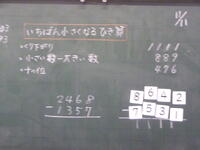 いちばん小さくなるひき算
・くり下がり
・小さい数－大きい数
・十の位
1111
889
496
2468
－1357
8642
－7531
1111